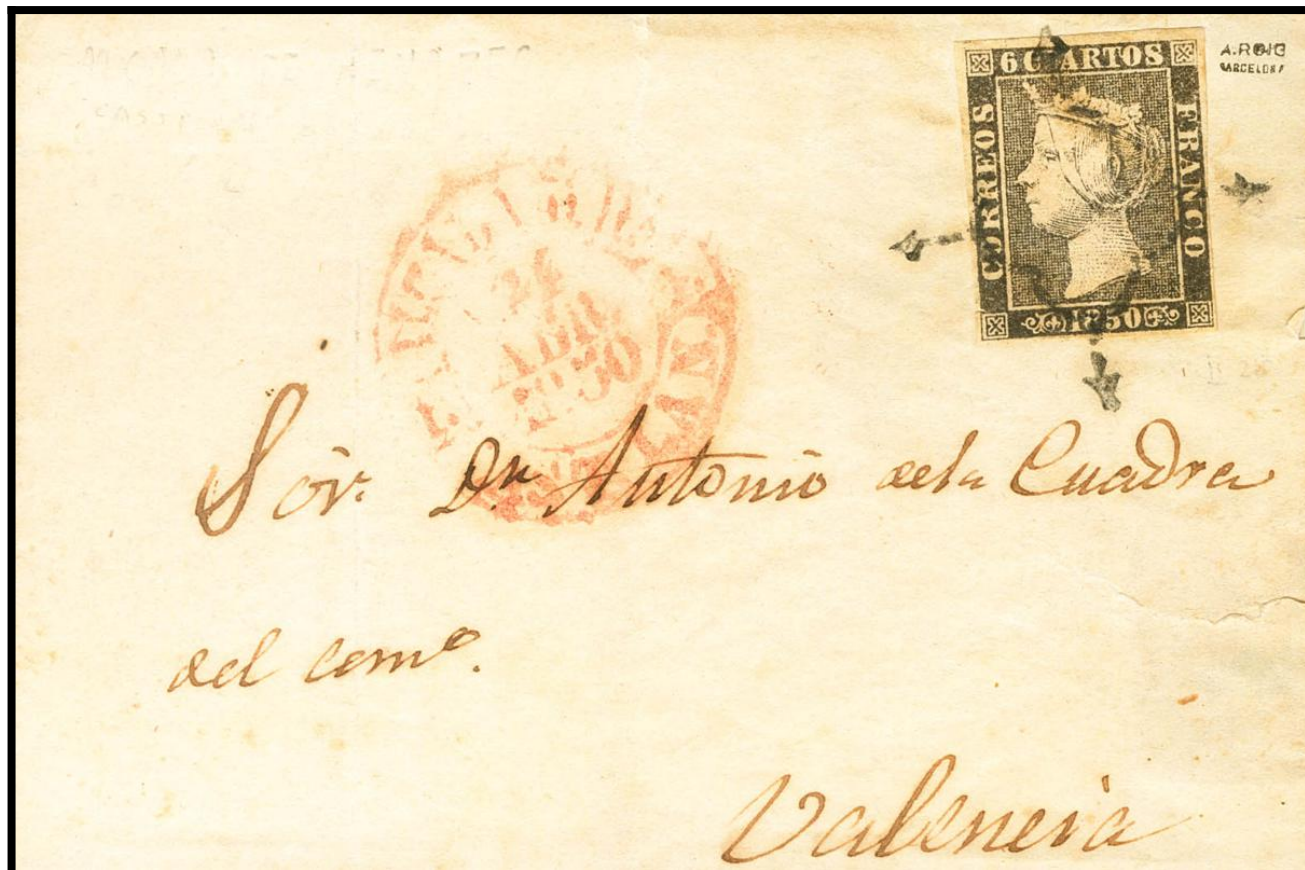 6 CUARTOS
CORREOS
FRANCO
1850
A.ROIG
BARCELONA
24
ABR
1850
Sór. Dn Antonio dela Cuadra
del comº.
Valencia